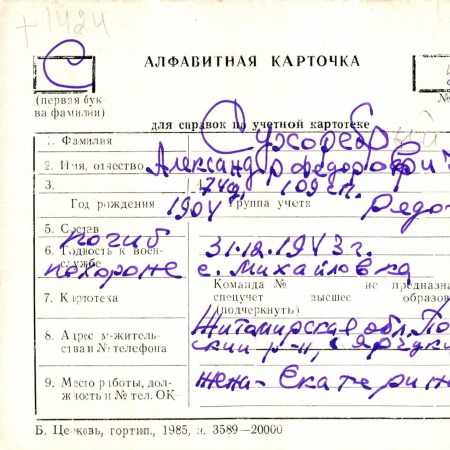 + 1424
С
АЛФАВИТНАЯ КАРТОЧКА
(первая бук-
ва фамилии)
№
для справок по учетной картотеке
1. Фамилия Сухоребр
2. Имя, отчество Александр Федорови
3. 74 д, 109 сп.
Год рождения 1904 Группа учета Рядо
5. Состав
6. Годность к воен- службе погиб 31.12.1943 г.
похороне с. Михайловка
7. Картотека
Команда № не предназна
спецучет высшее образов
(подчеркнуть)
8. Адрес м. жительства и № телефона Житомирская обл. По
ский р-н, с Ярочук
9. Место работы, дол-
жность и № тел. ОК жена - Екатерин
Б. Церковь, гортип., 1985, з. 3589—20000